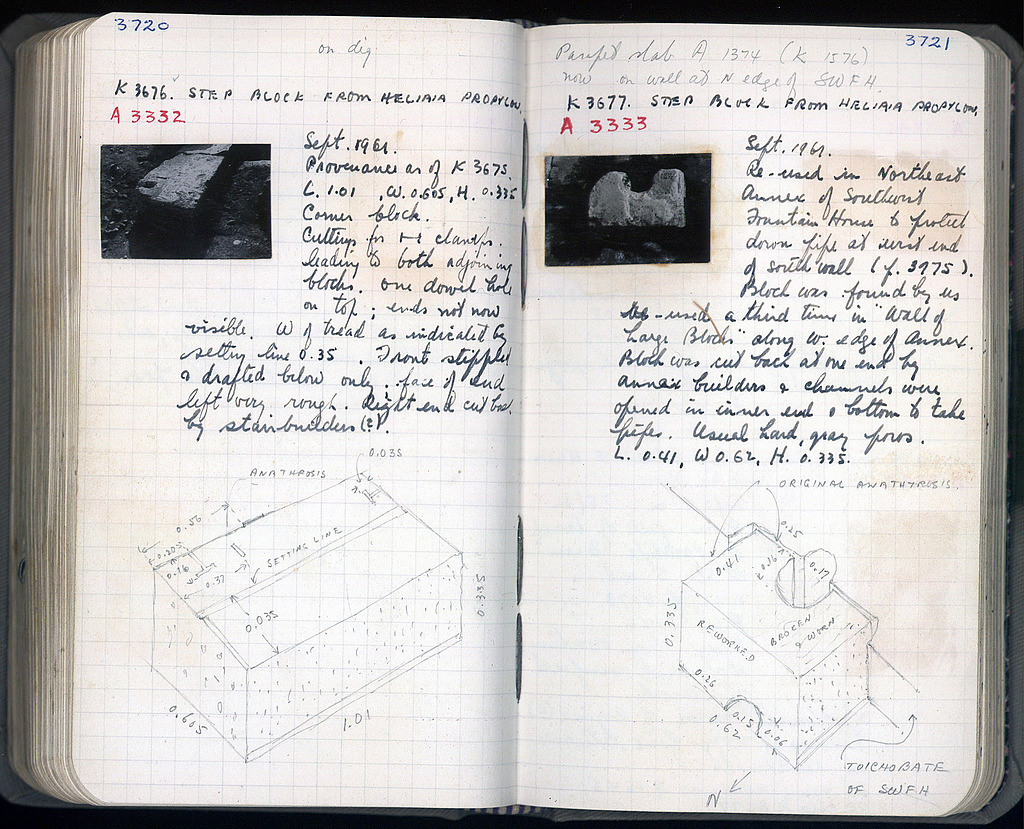 3720
on dig
K 3676. STEP BLOCK FROM HELIAIA PROPYLON
A 3332
Sept. 1961.
Provenance as of K 3675.
L. 1.01 , W. 0.605, H. 0.335
Corner block.
Cuttings for H clamps.
leading to both adjoining
blocks. One dowel hole
on top ; ends not now
visible. W of tread as indicated by
setting line 0.35 . Front stippled
& drafted below only. face of end
left very rough. Right end cut back
by stair-builders (?).
0.035
ANATHROSIS
0.56
0.205
0.16
0.37
SETTING LINE
0.035
0.335
0.605
1.01
3721
Parapet slab A 1374 (K 1576)
now on wall at N edge of SWFH.
K 3677. STEP BLOCK FROM HELIAIA PROPYLON,
A 3333
Sept. 1961.
Re-used in Northeast
Annex of Southwest
Fountain House to protect
down pipe at west end
of south wall (f. 3975).
Block was found by us
re-used a third time in "Wall of
Large Blocks" along W. edge of Annex.
Block was cut back at one end by
annex builders & channels were
opened in inner end & bottom to take
pipes. Usual hard, gray poros.
L. 0.41, W 0.62, H. 0.335.
ORIGINAL ANATHYROSIS.
0.25
0.41
0.16
0.17
0.335
REWORKED
BROKEN
& WORN
0.26
0.15
0.62
0.06
TOICHOBATE
OF SWFH
N